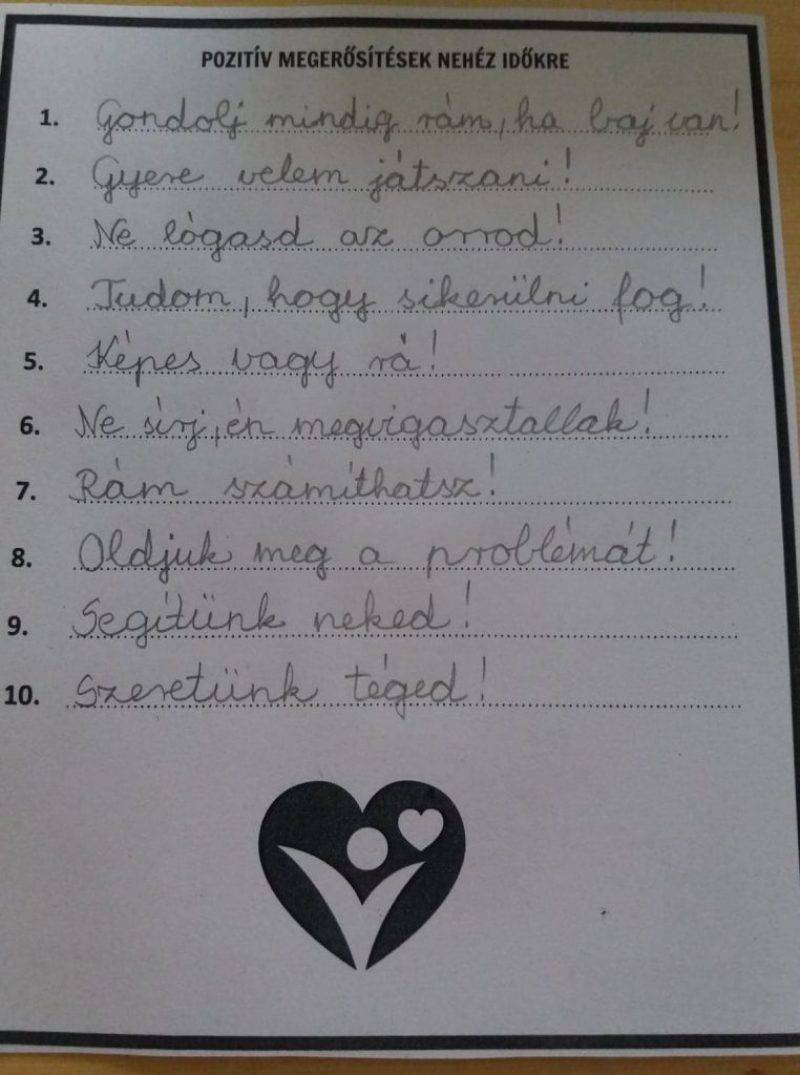 POZITÍV MEGERŐSÍTÉSEK NEHÉZ IDŐKRE
1. Gondolj mindig rám, ha baj van!
2. Gyere velem játszani!
3. Ne lógasd az orrod!
4. Tudom, hogy sikerülni fog!
5. Képes vagy rá!
6. Ne sírj, én megvigasztallak!
7. Rám számíthatsz!
8. Oldjuk meg a problémát!
9. Segítünk neked!
10. Szeretünk téged!